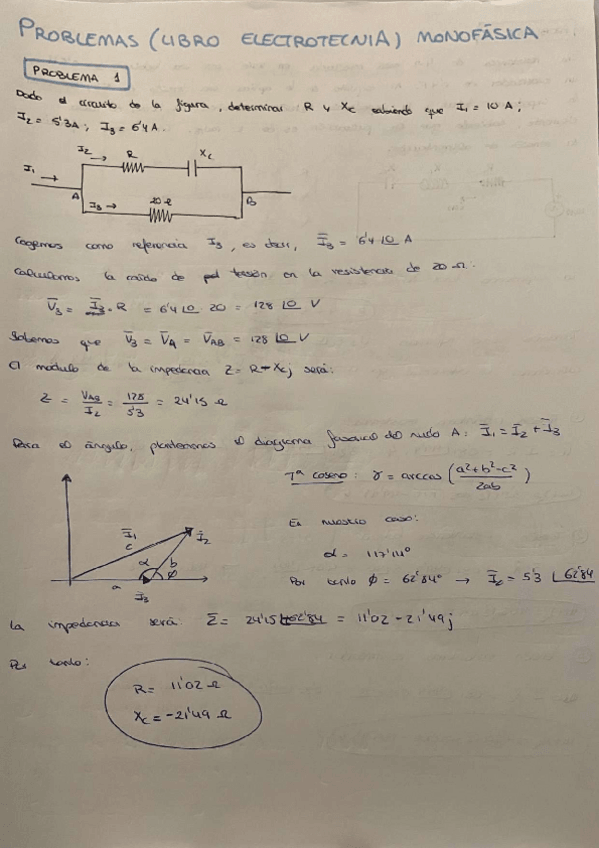 PROBLEMAS (LIBRO ELECTROTECNIA) MONOFÁSICA
PROBLEMA 1
Dado el circuito de la figura, determinar R y Xc sabiendo que I₁ = 10 A;
I₂ = 5'3A; I₃ = 6'4 A.
I₂ R Xc
I₁
A B
I₃ 20 Ω
Cogemos como referencia I₃, es decir, I̅₃ = 6'4 |0 A
Calculamos la caída de tensión en la resistencia de 20 Ω:
V̅₃ = I̅₃ · R = 6'4 |0 · 20 = 128 |0 V
Sabemos que V̅₃ = V̅A = V̅AB = 128 |0 V
El módulo de la impedancia Z = R - Xcj será:
Z = VAB/I₂ = 128/5'3 = 24'15 Ω
Para el ángulo, planteamos el diagrama fasorial del nudo A: I̅₁ = I̅₂ + I̅₃
Tª coseno: γ = arccos (a²+b²-c²/2ab)
En nuestro caso:
α = 117'14°
Por tanto ϕ = 62'84° → I̅₂ = 5'3 |62'84
I̅₁ I̅₂
c α b ϕ
a I̅₃
La impedancia será: Z̅ = 24'15 |-62'84 = 11'02 - 21'49j
Por tanto:
R = 11'02 Ω
Xc = -21'49 Ω